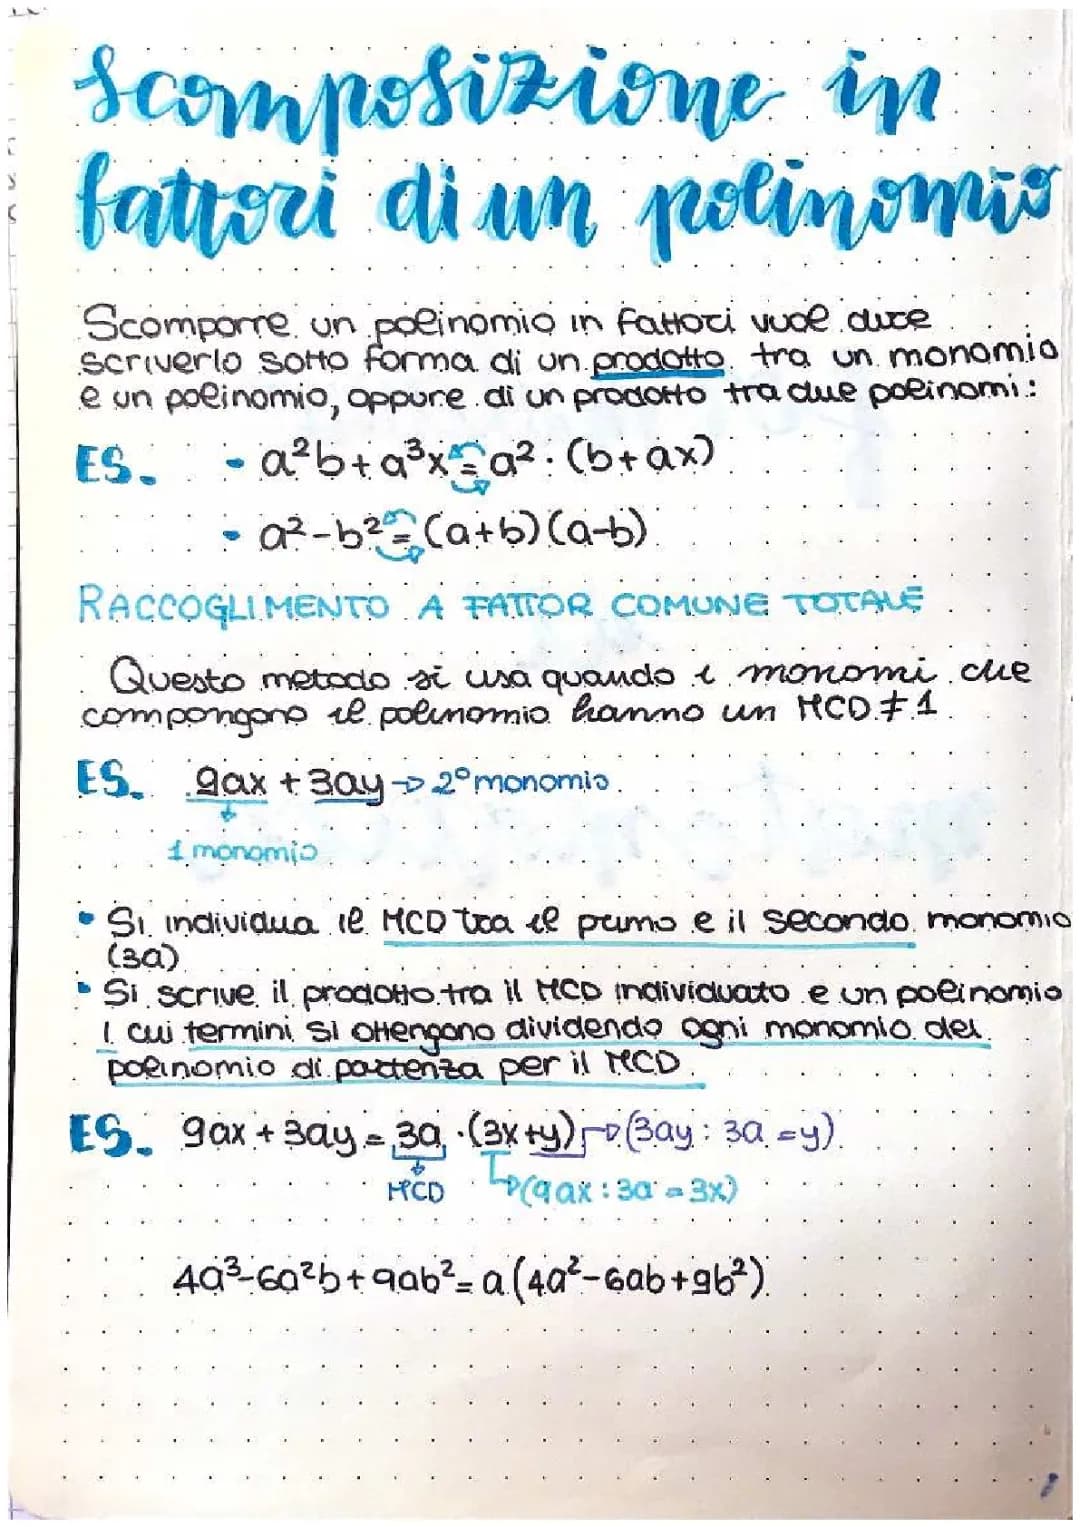 Scomposizione in
fattori di un polinomio
Scomporre un polinomio in fattori vuol dire
scriverlo sotto forma di un prodotto tra un monomio
e un polinomio, oppure di un prodotto tra due polinomi:
ES. - a²b + a³x = a² · (b+ax)
- a² - b² = (a+b)(a-b)
RACCOGLIMENTO A FATTOR COMUNE TOTALE
Questo metodo si usa quando i monomi che
compongono il polinomio hanno un MCD ≠ 1
ES. 9ax + 3ay → 2° monomio
1 monomio
• Si individua il MCD tra il primo e il secondo monomio
(3a)
• Si scrive il prodotto tra il MCD individuato e un polinomio
i cui termini si ottengono dividendo ogni monomio del
polinomio di partenza per il MCD
ES. 9ax + 3ay = 3a · (3x+y) → (3ay : 3a = y)
MCD → (9ax : 3a = 3x)
4a³ - 6a²b + 9ab² = a (4a² - 6ab + 9b²)